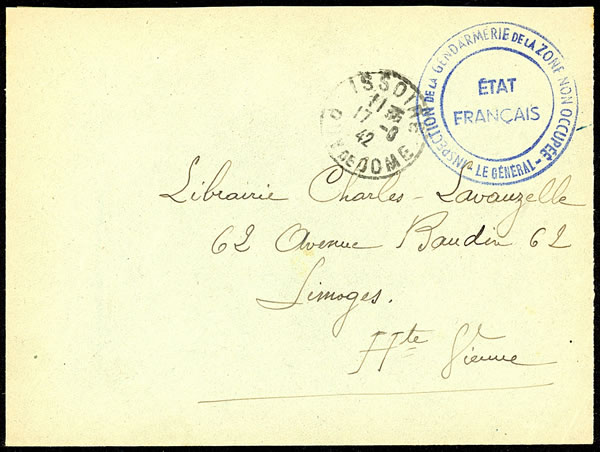 ISSOIRE
11 35
17 -9
42
PUY DE DOME
INSPECTION DE LA GENDARMERIE DE LA ZONE NON OCCUPÉE - LE GÉNÉRAL -
ÉTAT
FRANÇAIS
Librairie Charles-Lavauzelle
62 Avenue Baudin 62
Limoges.
Hte Vienne